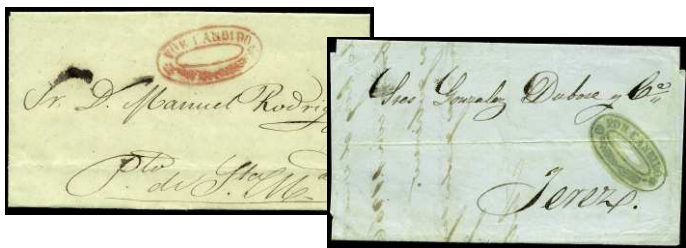 POR LANDIDO
Sr. D. Manuel Rodrig
Pto
de Sta. Ma
Sres. Gonzalez Dubosc y Ca
POR LANDIDO
Jerez.